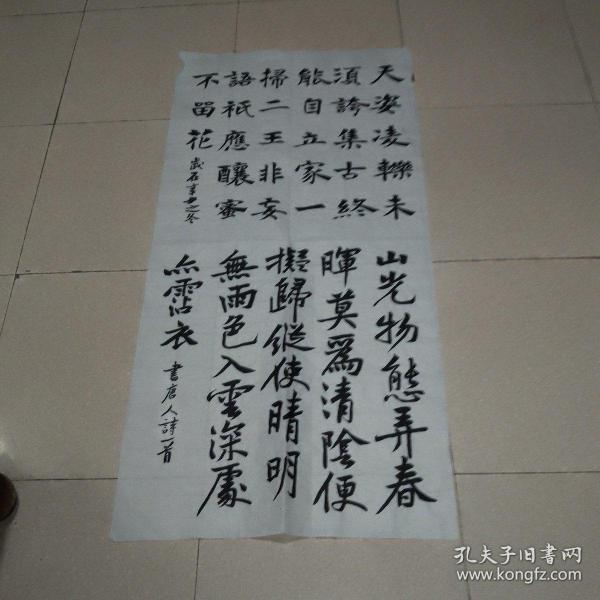 天姿凌轢未
須誇集古終
能自立家一
掃二王非妄
語祇應釀蜜
不留花
歲在辛丑之冬
山光物態弄春
暉莫爲清陰便
擬歸縱使晴明
無雨色入雲深處
亦霑衣
書唐人詩一首
孔夫子旧書网
www.kongfz.com